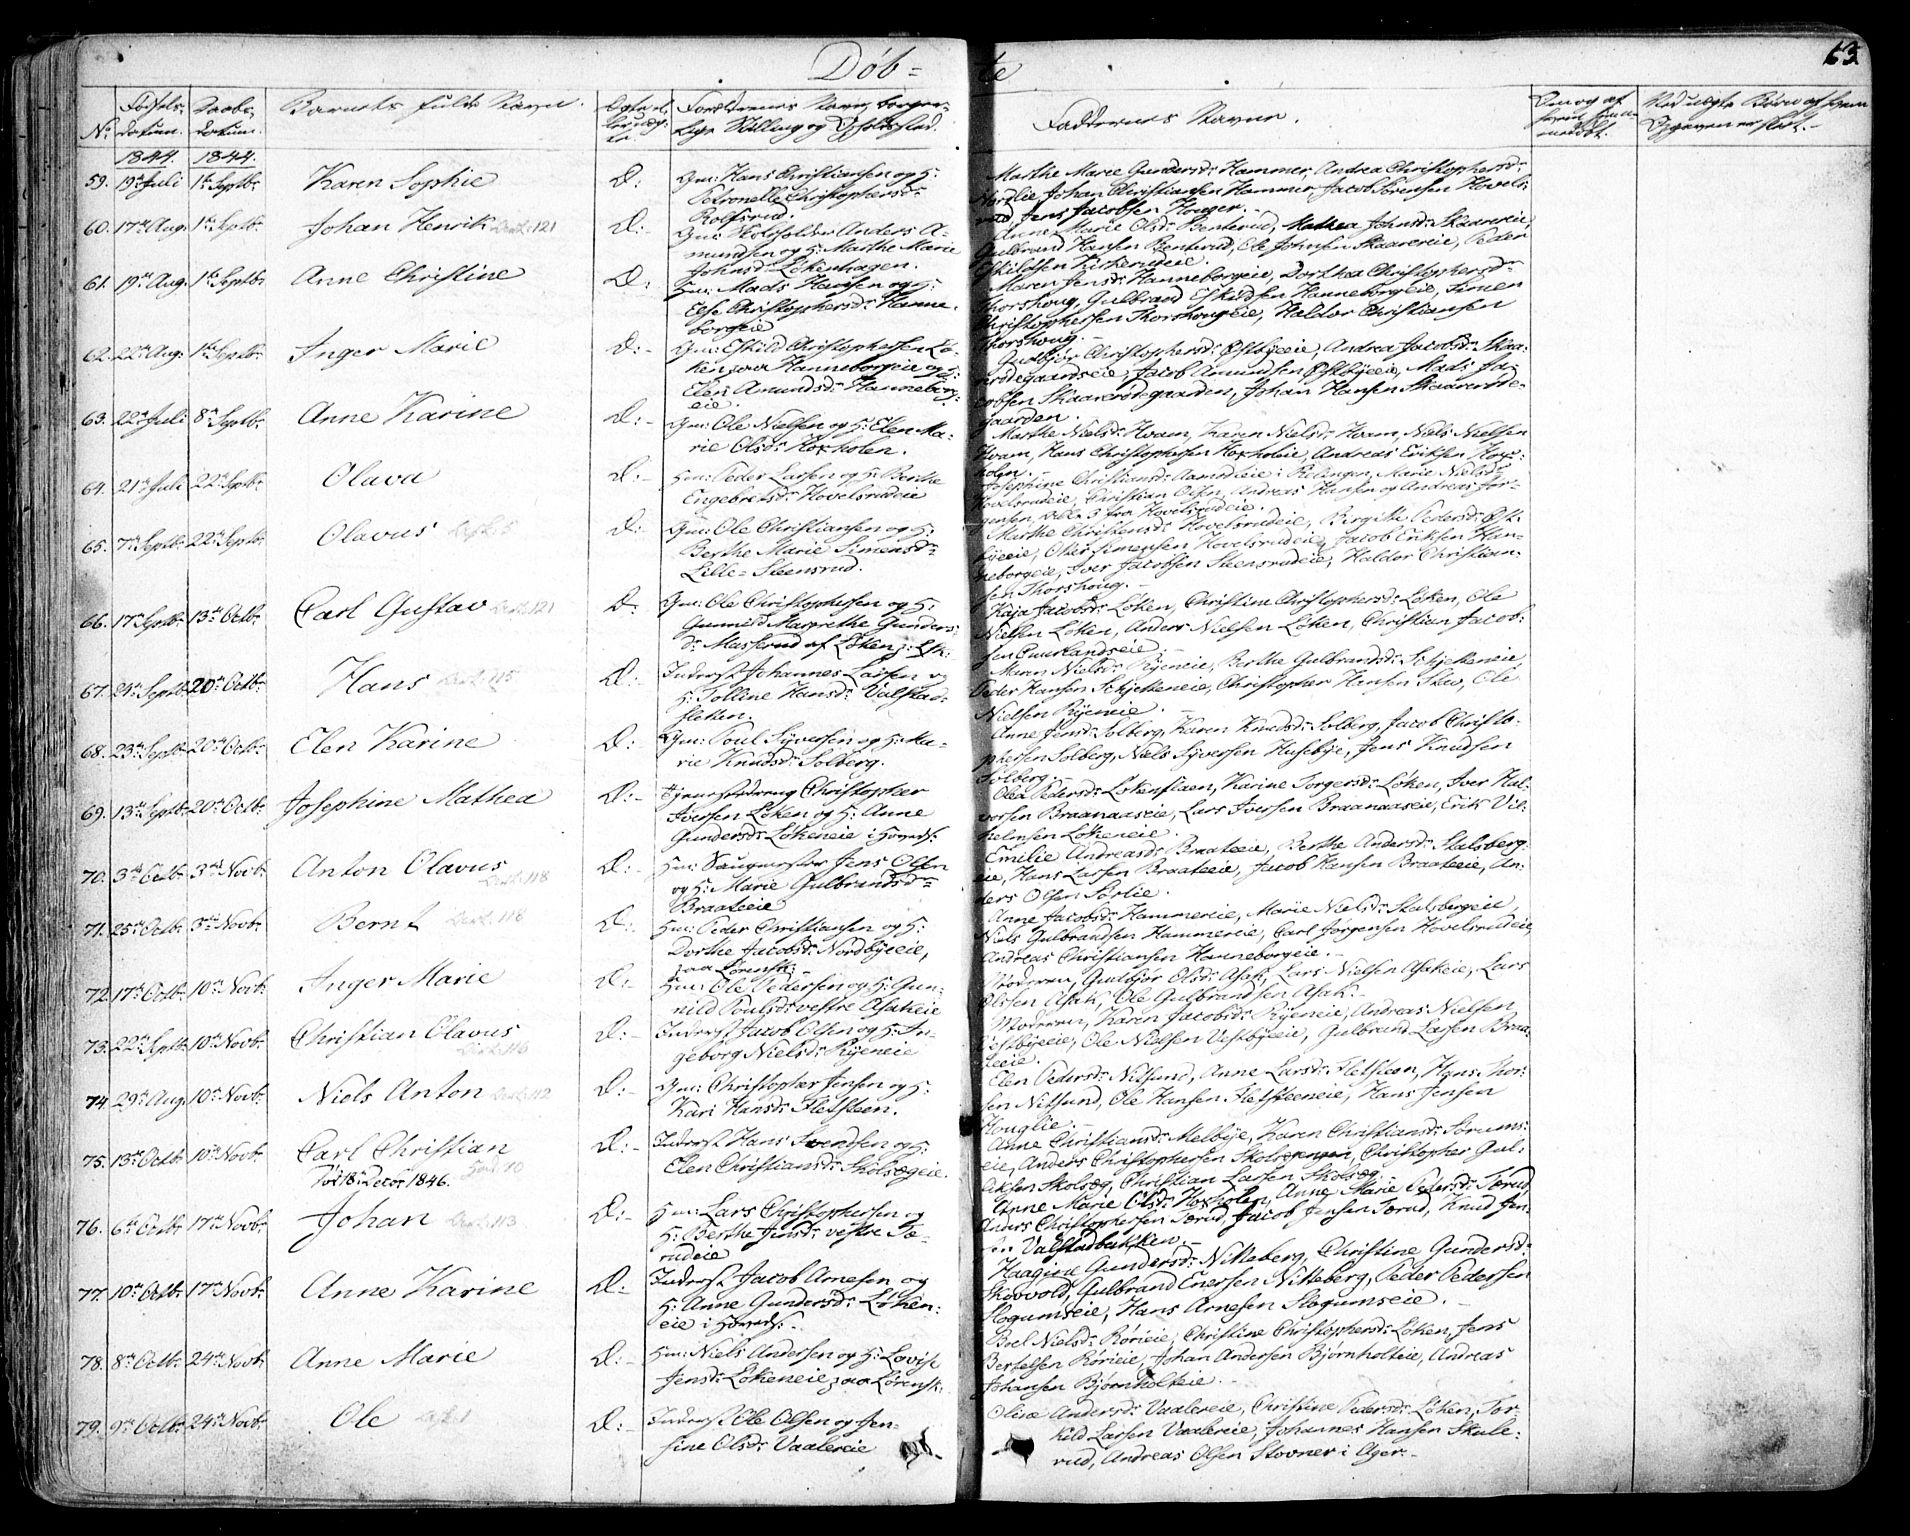 Døb= te
63
No Fødsels- datum. Daabs- datum. Barnets fulde Navn. Forældrenes Navn, borger-
lige Stilling og Opholdsted. Faddernes Navne.
1844. 1844.
59. 19de Juli 1ste Septbr Karen Sophie D: Gm: Hans Christiansen og H:
Petronelle Christophersdr
Rolfsrud.
Marthe Marie Gundersdr Hammer, Andrea Christophersdr
Johan Christiansen Hammer, Jacob Sørensen Hovels-
rud, Jens Jacobsen Houger.
60. 17de Aug. 1ste Septbr Johan Henrik 121 D: Gm: Skoleholder Anders A-
mundsen og H: Marthe Marie
Johnsdr Løkenhagen.
Anne Marie Olsdr Benterud, Mathea Johnsdr Skaarereie,
Gulbrand Hansen Benterud, Ole Johnsen Skaarereie, Peder
Eskildsen Kirkerudeie.
61. 19de Aug. 1ste Septbr Anne Christine D: Hm: Mads Hansen og H:
Else Christophersdr Hanne-
borgeie
Maren Jensdr Hanneborgeie, Dorthea Christophersdr
Thorshoug, Gulbrand Eskildsen Hanneborgeie, Simen
Christophersen Thorshougeie, Haldor Christiansen
Thorshoug.
62. 22de Aug. 1ste Septbr Inger Marie D: Gm: Eskild Christophersen Lø-
ken paa Hanneborgeie og H:
Elen Amundsdr Hanneborg-
eie.
Gulbjør Christophersdr Østbyeie, Andrea Jacobsdr Skaa-
rerødegaardseie, Jacob Amundsen Østbyeie, Mads Ja-
cobsen Skaarerødegaarden, Johan Hansen Skaarerøde-
gaarden.
63. 22de Juli 8de Septbr Anne Karine D: Gm: Ole Nielsen og H: Elen Ma-
rie Olsdr Hoxholen.
Marthe Nielsdr Hvam, Karen Nielsdr Hvam, Niels Nielsen
Hvam, Hans Christophersen Hoxholeie, Andreas Eriksen Hox-
holen.
64. 21de Juli 22de Septbr Olava D: Hm: Peder Larsen og H: Berthe
Engebretsdr Hovelsrudeie
Josephine Christiansdr Aamodteie i Rælingen, Marie Nielsdr
Hovelsrudeie, Christian Olsen, Andreas Hansen og Andreas Jør-
gensen, alle 3 fra Hovelsrudeie.
65. 7de Septbr 22de Septbr Olavus D: Gm: Ole Christiansen og H:
Berthe Marie Simensdr
Lille-Steensrud.
Marthe Christensdr Hovelsrudeie, Birgitte Pedersdr Øst-
byeeie, Ole Simensen Hovelsrudeie, Jacob Eriksen Han-
neborgeie, Iver Jacobsen Steensrudeie, Haldor Christian-
sen Thorshoug.
66. 17de Septbr 13de Octbr Carl Gustav 121 D: Gm: Ole Christophersen og H:
Gunnild Margrethe Gunders-
dr Masserud af Løken
Kaja Jacobsdr Løken, Christine Christophersdr Løken, Ole
Nielsen Løken, Anders Nielsen Løken, Christian Jacob-
sen Puurlandseie.
67. 24de Septbr 20de Octbr Hans 115 D: Inderst Johannes Larsen og
H: Tolline Hansdr Valstad-
sletten.
Maren Nielsdr Ryeneie, Berthe Gulbrandsdr Schjetteneie,
Peder Hansen Schjetteneie, Christopher Hansen Skev, Ole
Nielsen Ryeneie.
68. 23de Septbr 20de Octbr Elen Karine D: Gm: Poul Syversen og H: Ma-
rie Knudsdr Solberg.
Anne Jensdr Solberg, Karen Knudsdr Solberg, Jacob Christo-
phersen Solberg, Niels Syversen Husebye, Jens Knudsen
Solberg.
69. 13de Septbr 20de Octbr Josephine Mathea D: Tjenestedreng Christopher
Iversen Løken og H: Anne
Gundersdr Løkeneie i Høvedsk.
Olea Pedersdr Løkenstuen, Karine Torgersdr Løken, Iver Hal-
vorsen Braanaaseie, Lars Iversen Braanaaseie, Erik Vil-
helmsen Løkeneie.
70. 3de Octbr 3de Novbr Anton Olavus 118 D: Hm: Saugmester Jens Olsen
og H: Marie Gulbrandsdr
Braateeie
Emilie Andreasdr Braateeie, Berthe Andersdr Stalsberg-
eie, Hans Larsen Braateeie, Jacob Hansen Braateeie, An-
ders Olsen Sørlie.
71. 25de Octbr 3de Novbr Bernt 118 D: Hm: Peder Christiansen og H:
Dorthe Jacobsdr Nordbyeeie,
paa Lørensk:
Anne Jacobsdr Hammereie, Marie Nielsdr Stalsbergeie,
Niels Gulbrandsen Hammereie, Carl Jørgensen Hovelsrudeie,
Andreas Christiansen Hanneborgeie.
72. 17de Octbr 10de Novbr Inger Marie D: Hm: Ole Pedersen og H: Gun-
nild Poulsdr vestre Asakeie
Moderen, Gulbjør Olsdr Asak, Lars Nielsen Asakeie, Lars
Olsen Asak, Ole Gulbrandsen Asak.
73. 22de Septbr 10de Novbr Christian Olavus 116 D: Inderst Jacob Olsen og H: In-
geborg Nielsdr Ryeneie
Moderen, Karen Jacobsdr Ryeneie, Andreas Nielsen
Vestbyeeie, Ole Nielsen Vestbyeeie, Gulbrand Larsen Braa-
teeie.
74. 29de Aug. 10de Novbr Niels Anton 112 D: Gm: Christopher Jensen og H:
Kari Hansdr Fletsteen.
Elen Pedersdr Nitsund, Anne Larsdr Fletsteen, Hans Thor-
sen Nitsund, Ole Hansen Fletsteeneie, Hans Jensen
Houglie.
75. 13de Octbr 10de Novbr Carl Christian D: Inderst Hans Svendsen og H:
Død 18de Decbr 1846.
Elen Christiansdr Skolsægeie.
Anne Christiansdr Melbye, Karen Christiansdr Sørums-
eie, Anders Christophersen Skolsegengen, Christopher Gul-
eiksen Skolsæg, Christian Larsen Skolsæg.
76. 6de Octbr 17de Novbr Johan 113 D: Hm: Lars Christophersen og
H: Berthe Jensdr vestre Tæ-
rudeie
Anne Marie Olsdr Hoxholen, Anne Marie Pedersdr Tærud,
Anders Christophersen Tærud, Jacob Jensen Tærud, Knud Jen-
sen Valstadbakken.
77. 10de Octbr 17de Novbr Anne Karine D: Inderst Jacob Arnesen og
H: Anne Gundersdr Løken-
eie i Høvedsk.
Haagine Gundersdr Nitteberg, Christine Gundersdr
Skovvold, Gulbrand Enersen Nitteberg, Peder Pedersen
Slogumseie, Hans Arnesen Slogumseie.
78. 8de Octbr 24de Novbr Anne Marie D: Hm: Niels Andersen og H: Lovise
Jensdr Løkeneie paa Lørensk:
Boel Nielsdr Rørieie, Christine Christophersdr Løken, Jens
Bertelsen Rørieie, Johan Andersen Bjørnholteie, Andreas
Johansen Bjørnholteie.
79. 9de Octbr 24de Novbr Ole D: Inderst Ole Olsen og Jen-
sine Olsdr Vaalereie
Olise Andersdr Vaalereie, Christine Pedersdr Løken, Tor-
kild Larsen Vaalereie, Johannes Hansen Skule-
rud, Andreas Olsen Stovner i Ager.